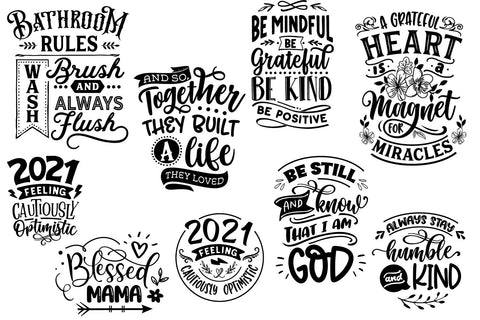 BATHROOM
RULES
WASH
Brush
AND
ALWAYS
Flush
AND SO,
Together
THEY BUILT
A life
THEY LOVED
BE MINDFUL
BE
Grateful
BE KIND
BE POSITIVE
A GRATEFUL
HEART
IS A
Magnet
FOR
MIRACLES
2021
FEELING
CAUTIOUSLY
Optimistic
Blessed
MAMA
2021
FEELING
CAUTIOUSLY OPTIMISTIC
BE STILL
AND know
THAT I AM
GOD
ALWAYS STAY
humble
and KIND